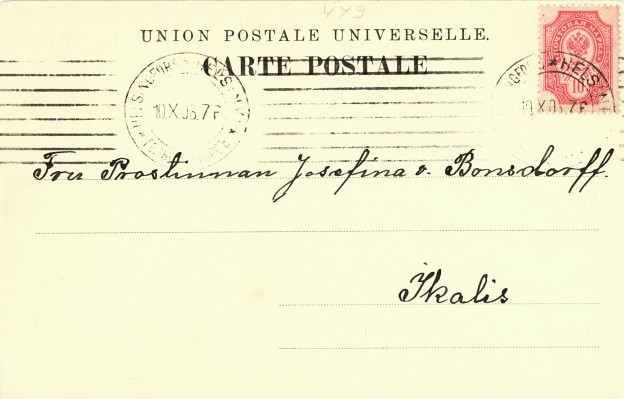 449
UNION POSTALE UNIVERSELLE.
CARTE POSTALE
HELSINGFORS ★ HELSINKI ★
10.X.06.7 F
HELS
10.X.0 .7 F
10
Fru Prostinnan Josefina v. Bonsdorff.
Ikalis